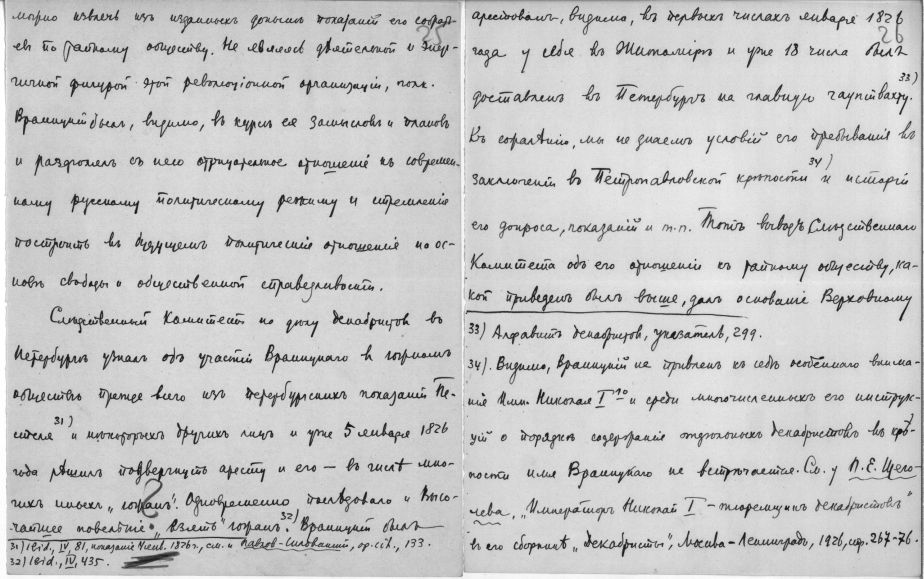 можно извлечь изъ изданныхъ донынѣ показаній его собрат-
евъ по тайному обществу. Не являясь дѣятельной и энер-
гичной фигурой этой революціонной организаціи, полк.
Враницкій былъ, видимо, въ курсѣ ея замысловъ и плановъ
и раздѣлялъ съ нею отрицательное отношеніе къ современ-
ному русскому политическому режиму и стремленіе
построить въ будущемъ политическія отношенія на ос-
новѣ свободы и общественной справедливости.
Слѣдственный Комитетъ по дѣлу декабристовъ въ
Петербургѣ узналъ объ участіи Враницкаго въ
обществѣ прежде всего изъ петербургскихъ показаній Пе-
стеля 31) и нѣкоторыхъ другихъ лицъ и уже 5 января 1826
года рѣшилъ подвергнуть аресту и его — въ числѣ мно-
гихъ иныхъ. Одновременно послѣдовало и Высо-
чайшее повелѣніе: „взять". 32) Враницкій былъ
31) Ibid., IV, 81, показаніе 1826 г., см. и Павловъ-Сильванскій, op. cit., 133.
32) Ibid., IV, 435.
25
26
арестованъ, видимо, въ первыхъ числахъ января 1826
года у себя въ Житомірѣ и уже 18 числа былъ
доставленъ въ Петербургъ на главную гауптвахту. 33)
Къ сожалѣнію, мы не знаемъ условій его пребыванія въ
заключеніи въ Петропавловской крѣпости 34) и исторіи
его допроса, показаній и т.п. Тотъ выводъ Слѣдственнаго
Комитета объ его отношеніи къ тайному обществу, ка-
кой приведенъ былъ выше, далъ основаніе Верховному
33) Алфавитъ декабристовъ, указатель, 299.
34). Видимо, Враницкій не привлекъ къ себѣ особеннаго внима-
нія Имп. Николая I го и среди многочисленныхъ его инструк-
цій о порядкѣ содержанія отдѣльныхъ декабристовъ въ крѣ-
пости имя Враницкаго не встрѣчается. См. у П. Е. Щего-
лева, „Императоръ Николай I – тюремщикъ декабристовъ"
въ его сборникѣ „Декабристы", Москва-Ленинградъ, 1926, стр. 267-76.